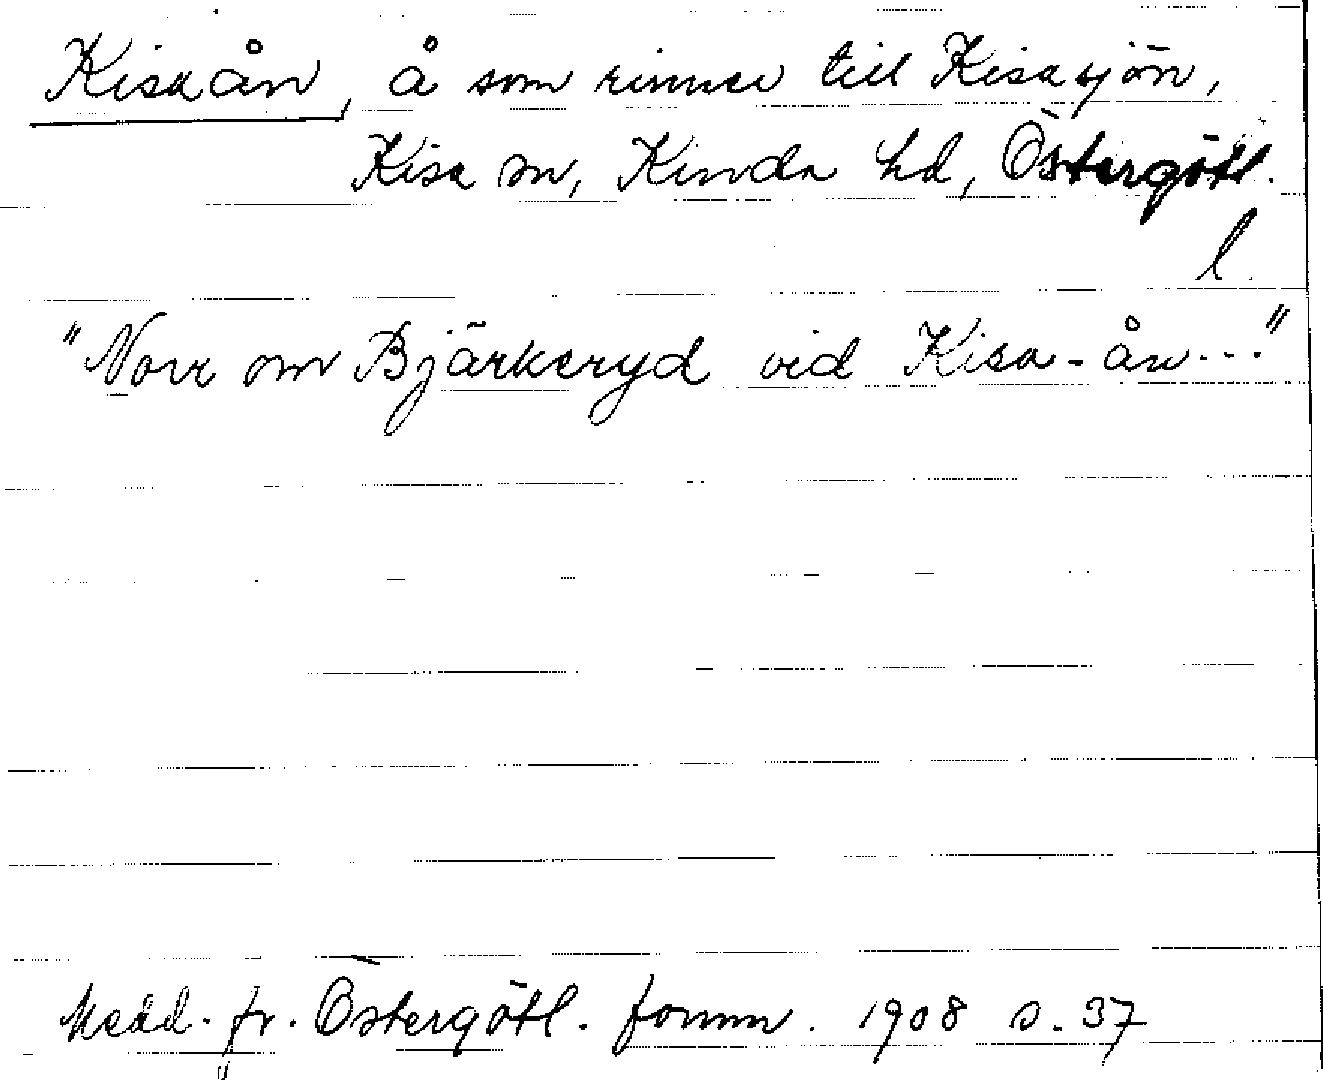 Kisaån, å som rinner till Kisasjön,
Kisa sn, Kinda hd, Östergötl.
l.
"Norr om Bjärkeryd vid Kisa-ån..."
Medd. fr. Östergötl. fornm. 1908 s. 37